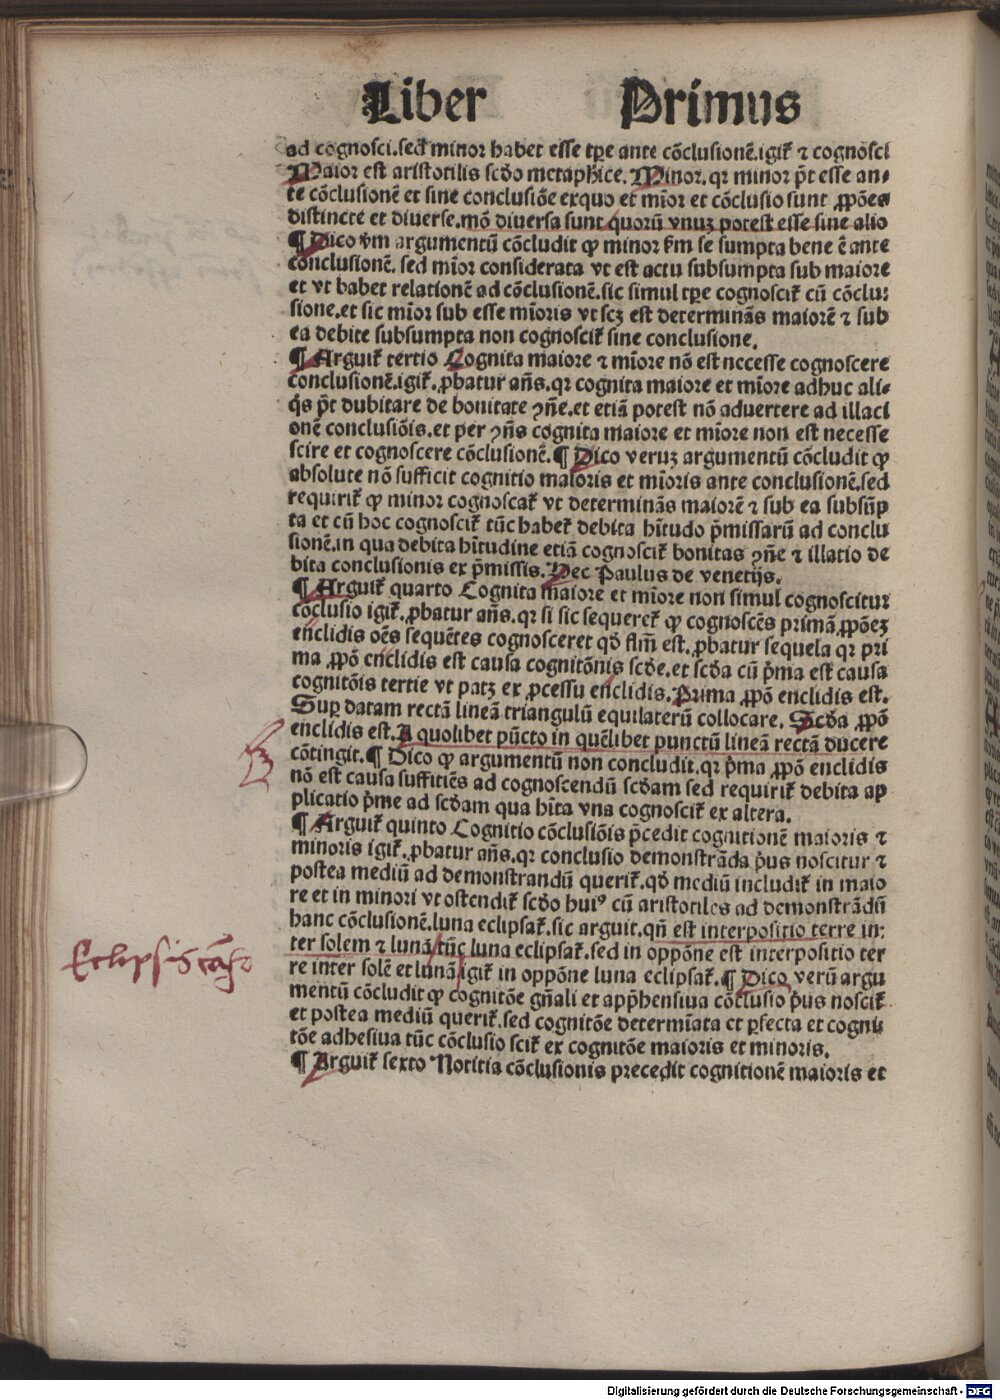 Liber Primus
ad cognosci.sed minor habet esse tp̄e ante cōclusionē.igit᷑ ⁊ cognosci
Maior est aristotilis scd̄o metaph̄ice. Minor.qr minor pōt esse an-
te cōclusionē et sine conclusiōe exquo et mīor et cōclusio sunt ꝓpōes
distincte et diuerse.mō diuersa sunt quorū vnuꝫ potest esse sine alio
¶ Dico ꝟm argumentū cōcludit ꝙ minor ẜm se sumpta bene ē ante
conclusionē. sed mīor considerata vt est actu subsumpta sub maiore
et vt habet relationē ad cōclusionē.sic simul tp̄e cognoscit᷑ cū cōclu:
sione.et sic mīor sub esse mīoris vt scꝫ est determinās maiorē ⁊ sub
ea debite subsumpta non cognoscit᷑ sine conclusione.
¶ Arguit᷑ tertio Cognita maiore ⁊ mīore nō est necesse cognoscere
conclusionē.igit᷑.ꝓbatur añs.qr cognita maiore et mīore adhuc ali-
q̄s pōt dubitare de bonitate ꝯñe.et etiā potest nō aduertere ad illaci
onē conclusiōis.et per ꝯñs cognita maiore et mīore non est necesse
scire et cognoscere cōclusionē.¶ Dico veruꝫ argumentū cōcludit ꝙ
absolute nō sufficit cognitio maioris et mīoris ante conclusionē.sed
requirit᷑ ꝙ minor cognoscat᷑ vt determinās maiorē ⁊ sub ea subsūp
ta et cū hoc cognoscit᷑ tūc habet᷑ debita hītudo p̄missarū ad conclu
sionē.in qua debita hītudine etiā cognoscit᷑ bonitas ꝯñe ⁊ illatio de
bita conclusionis ex p̄missis. Hec Paulus de venetijs.
¶ Arguit᷑ quarto Cognita maiore et mīore non simul cognoscitur
cōclusio igit᷑.ꝓbatur añs.qr si sic sequeret᷑ ꝙ cognoscēs primā ꝓpōeꝫ
enclidis oēs sequētes cognosceret qd̄ flm̄ est.ꝓbatur sequela qr pri
ma ꝓpō enclidis est causa cognitōnis scd̄e.et scd̄a cū p̄ma est causa
cognitōis tertie vt patꝫ ex ꝓcessu enclidis. Prima ꝓpō enclidis est.
Suꝑ datam rectā lineā triangulū equilaterū collocare. Scd̄a ꝓpō
enclidis est.A quolibet pūcto in quēlibet punctū lineā rectā ducere
cōtingit.¶ Dico ꝙ argumentū non concludit.qr p̄ma ꝓpō enclidis
nō est causa suffitiēs ad cognoscendū scd̄am sed requirit᷑ debita ap
plicatio p̄me ad scd̄am qua hīta vna cognoscit᷑ ex altera.
¶ Arguit᷑ quinto Cognitio cōclusiōis p̄cedit cognitionē maioris ⁊
minoris igit᷑.ꝓbatur añs.qr conclusio demonstrāda p̄us noscitur ⁊
postea mediū ad demonstrandū querit᷑.qd̄ mediū includit᷑ in maio
re et in minori vt ostendit᷑ scd̄o huiꝰ cū aristotiles ad demonstrādū
hanc cōclusionē.luna eclipsat᷑.sic arguit.qñ est interpositio terre in:
ter solem ⁊ lunā tūc luna eclipsat᷑.sed in oppōne est interpositio ter
re inter solē et lunā igit᷑ in oppōne luna eclipsat᷑.¶ Dico verū argu
mentū cōcludit ꝙ cognitōe gñali et app̄hensiua cōclusio p̄us noscit᷑
et postea mediū querit᷑.sed cognitōe determīata et ꝑfecta et cogni-
tōe adhesiua tūc cōclusio scit᷑ ex cognitōe maioris et minoris.
¶ Arguit᷑ sexto Notitia cōclusionis precedit cognitionē maioris et
Eclipsis
Digitalisierung gefördert durch die Deutsche Forschungsgemeinschaft - DFG